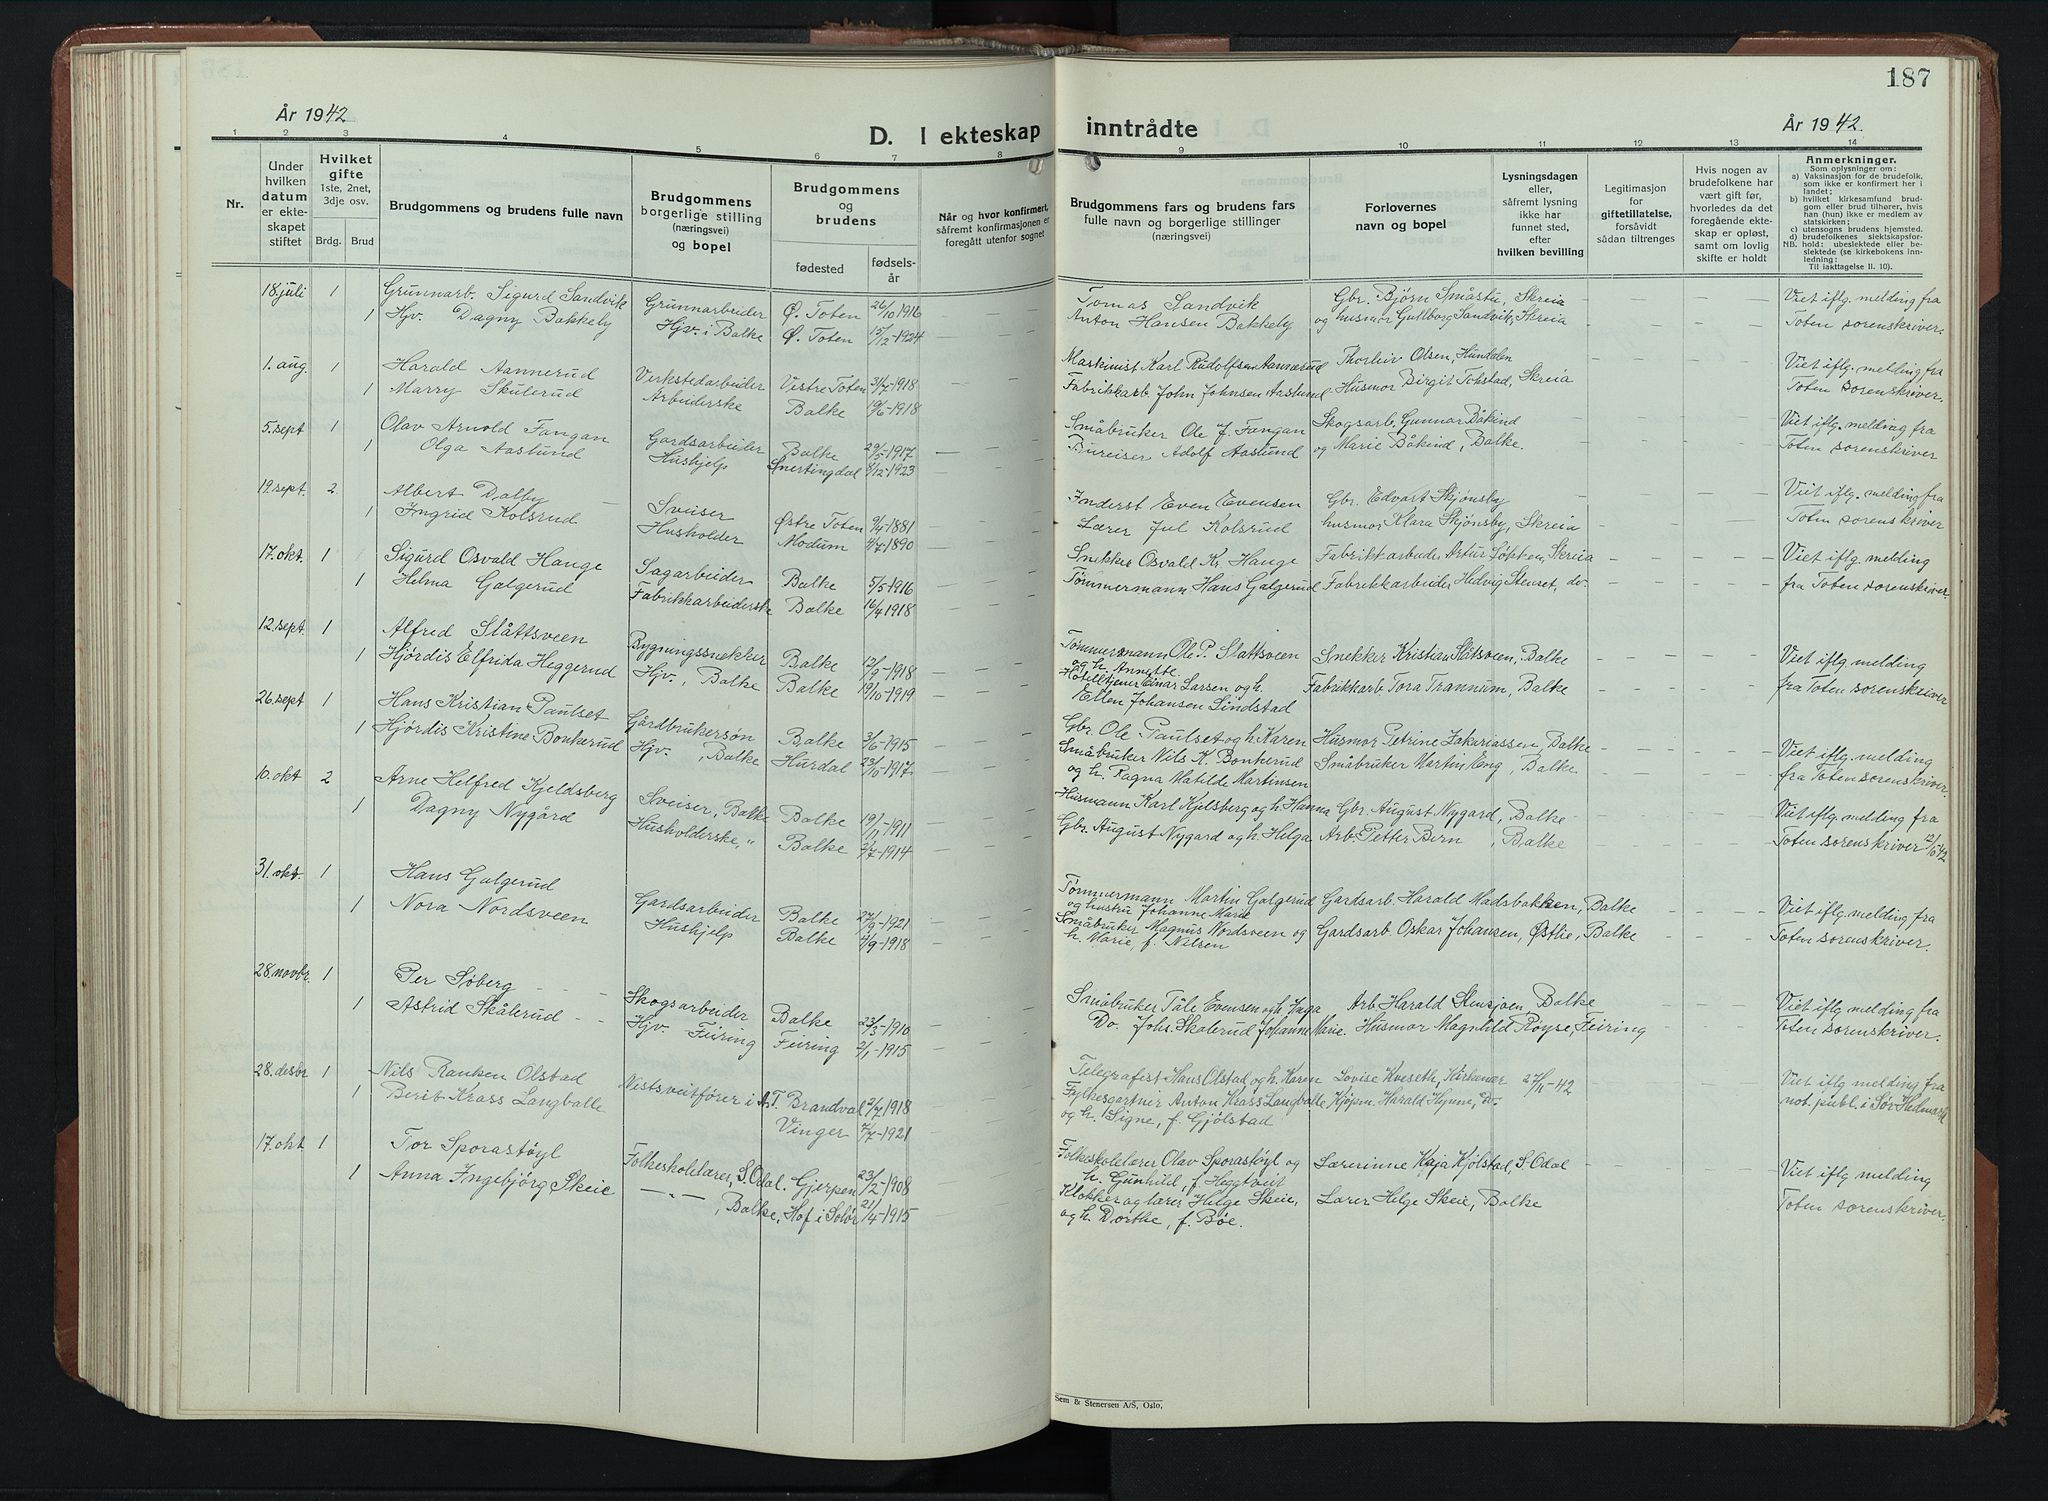 187
År 1942
D. I ekteskap inntrådte
År 1942.
1 2 3 4 5 6 7 8 9 10 11 12 13 14
Nr.
Under hvilken datum er ekteskapet stiftet
Hvilket gifte 1ste, 2net, 3dje osv.
Brdg. Brud
Brudgommens og brudens fulle navn
Brudgommens borgerlige stilling (næringsvei) og bopel
Brudgommens og brudens
fødested
fødselsår
Når og hvor konfirmert, såfremt konfirmasjonen er foregått utenfor sognet
Brudgommens fars og brudens fars fulle navn og borgerlige stillinger (næringsvei)
Forlovernes navn og bopel
Lysningsdagen eller, såfremt lysning ikke har funnet sted, efter hvilken bevilling
Legitimasjon for giftetillatelse, forsåvidt sådan tiltrenges
Hvis nogen av brudefolkene har vært gift før, hvorledes da det foregående ekteskap er opløst, samt om lovlig skifte er holdt
Anmerkninger.
Som oplysninger om:
a) Vaksinasjon for de brudefolk, som ikke er konfirmert her i landet;
b) hvilket kirkesamfund brudgom eller brud tilhører, hvis han (hun) ikke er medlem av statskirken;
c) utensogns brudens hjemsted.
d) brudefolkenes slektskapsforhold:
NB. ubeslektede eller beslektede (se kirkebokens innledning: Til iakttagelse II. 10).
18. juli 1 Grunnarb. Sigurd Sandvik Grunnarbeider Ø. Toten 26/10 1916 Tomas Sandvik Gbr. Bjørn Småstu, Skreia Viet iflg. melding fra
1 Hjv. Dagny Bakkely Hjv. i Balke Ø. Toten 15/12-1924 Anton Hansen Bakkely og husmor Gullborg Sandvik, Skreia Toten sorenskriver.
1. aug. 1 Harald Aannerud Verkstedarbeider Vestre Toten 31/7-1918 Maskinist Karl Rudolfsen Aannerud Thorleiv Olsen, Hundalen Viet iflg. melding fra
1 Marry Skulerud Arbeiderske Balke 19/6-1918 Fabrikkarb. John Johnsen Aaslund Husmor Birgit Tohstad, Skreia Toten sorenskriver.
5. sept 1 Olav Arnold Fangan Gardsarbeider Balke 29/5-1917 Småbruker Ole J. Fangan Skogsarb. Gunnar Båkind Viet iflg. melding fra
1 Olga Aaslund Hushjelp Snertingdal 8/12-1923 Bureiser Adolf Aaslund og Marie Båkind, Balke. Toten sorenskriver
19. sept. 2. Albert Dalby Sveiser Østre Toten 9/4-1881 Inderst Even Evensen Gbr. Edvart Skjønsby Viet iflg. melding fra
1 Ingrid Kolsrud Husholder Modum 4/7-1890 Lærer Jul Kolsrud husmor Klara Skjønsby, Skreia Toten sorenskriver
17. okt. 1 Sigurd Osvald Hauge Sagarbeider Balke 5/5-1916 Snekker Osvald Kr. Hauge Fabrikkarbeider Artur Løkken, Skreia Viet iflg. melding
1 Helma Galgerud Fabrikkarbeiderske Balke 16/4 1918 Tømmermann Hans Galgerud Fabrikkarbeider Hedvig Stenset, do. fra Toten sorenskriver.
12. sept. 1 Alfred Slåttsveen Bygningssnekker Balke 12/9-1918 Tømmermann Ole P. Slattsveen og h. Annette. Snekker Kristian Slåtsveen, Balke Viet iflg. melding
1 Hjørdis Elfrida Heggerud Hjv., Balke Balke 19/10-1919 Hotelltjener Einar Larsen og h. Ellen Johansen Lindstad Fabrikkarb. Tora Trannum, Balke fra Toten sorenskriver
26. sept 1 Hans Kristian Paulset Gårdbrukersøn Balke 3/6-1915 Gbr. Ole Paulset og h. Karen Husmor Petrine Zakariassen, Balke Viet iflg. melding
1 Hjørdis Kristine Bonkerud Hjv., Balke Hurdal 23/10-1917 Småbruker Nils K. Bonkerud og h. Ragna Matilde Martinsen Småbruker Martin Eng, Balke fra Toten sorenskriver.
10. okt 2 Arne Helfred Kjeldsberg Sveiser, Balke Balke 19/11-1911 Husmann Karl Kjelsberg og h. Hanna Gbr. August Nygard, Balke Viet iflg. melding fra
1 Dagny Nygård Husholderske, " Balke 2/7-1914 Gbr. August Nygard og h. Helga Arb. Petter Bern, Balke Toten sorenskriver 12/10-42
31. okt. 1 Hans Galgerud Gardsarbeider Balke 27/9-1921 Tømmermann Martin Galgerud og hustru Johanne Marie Gardsarb. Harald Madsbakken, Balke Viet iflg. melding, fra
1 Nora Nordsveen Hushjelp Balke 4/9-1918 Småbruker Magnus Nordsveen og h. Marie, f. Nilsen Gardsarb. Oskar Johansen, Østlie, Balke Toten sorenskriver.
28. novbr. 1 Per Søberg Skogsarbeider Balke 23/3-1910 Småbruker Tåle Evensen og h. Inga Arb. Harald Stensjøen, Balke Viet iflg. melding fra
1 Astrid Skålerud Hjv. Feiring Feiring 2/1-1915 Do. Johs. Skålerud Johanne Marie. Husmor Magnhild Røyse, Feiring Toten sorenskriver.
28. desbr 1 Nils Ranken Olstad T. Brandval 2/7 1918 Telegrafist Hans Olstad og h. Karen Lovise Kveseth, Kirkenær 27/11-42 Viet iflg. melding fra
1 Berit Krass Langballe Vinger 7/7-1921 Fylkesgartner Anton Krass Langballe og h. Signe, f. Gjølstad Kjøpm. Harald Hynne, Do. not. publ. i Sør-Hedmark
17. okt 1 Tor Sporastøyl Folkeskolelærer, S. Odal. Gjerpen 23/2-1908 Folkeskolelærer Olav Sporastøyl og h. Gunhild, f. Heggtveit Lærerinne Kaja Kjølstad, S-Odal Viet iflg melding
1 Anna Ingebjørg Skeie —"—, Balke, Hof i Solør 21/4-1915 Klokker og lærer Helge Skeie, og h. Dorthe, f. Bøe. Lærer Helge Skeie, Balke Toten sorenskriver.
Sem & Stenersen A/S, Oslo.